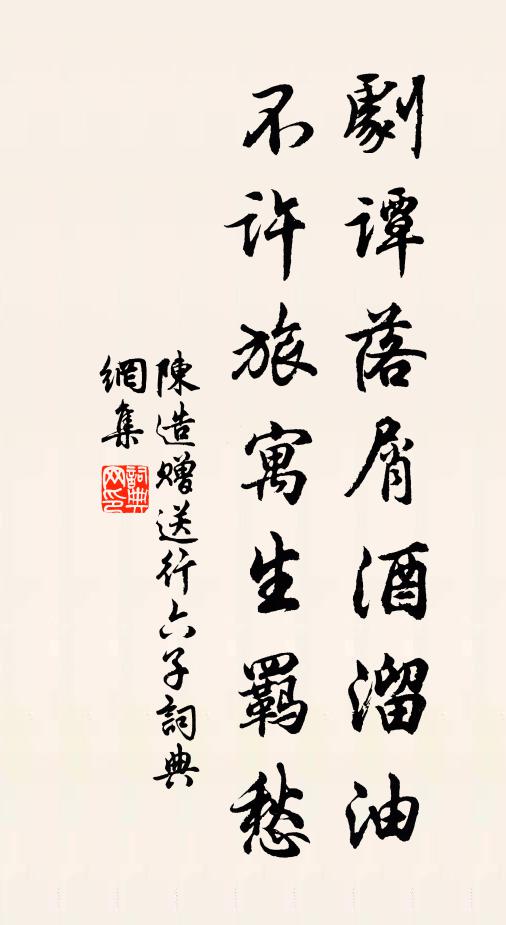 劇譚落屑酒溜油
不許旅寓生羈愁
陳造贈送行六子詞典
網集
詞典网印